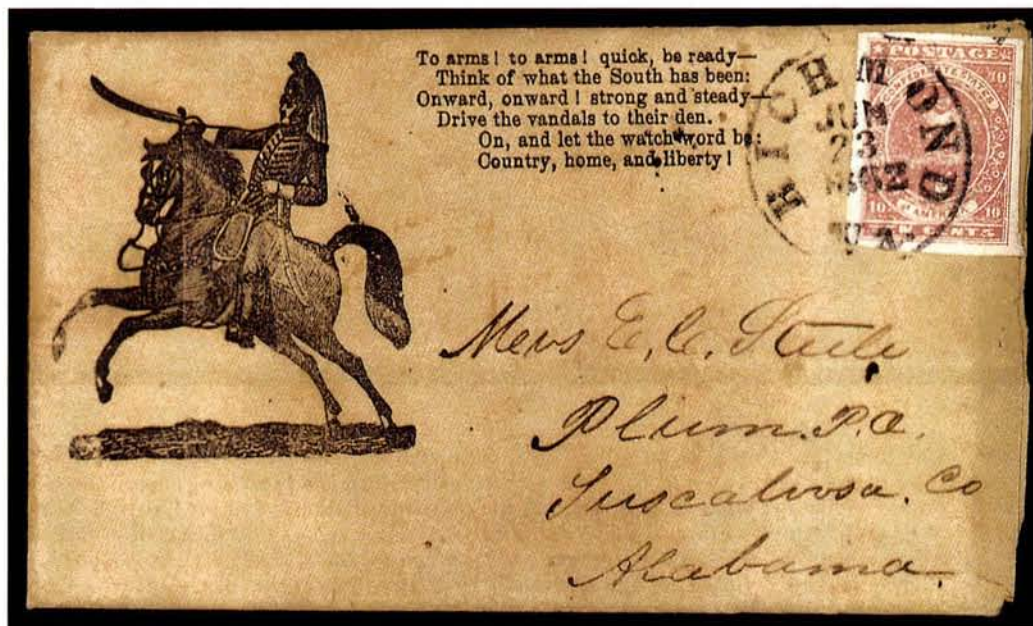 To arms! to arms! quick, be ready—
Think of what the South has been:
Onward, onward! strong and steady—
Drive the vandals to their den.
On, and let the watchword be:
Country, home, and liberty!
POSTAGE
10 10
TEN CENTS
RICHMOND
JUN
23
1862
VA.
E. C. Steele
Plum. P.O.
Tuscaloosa. Co
Alabama.